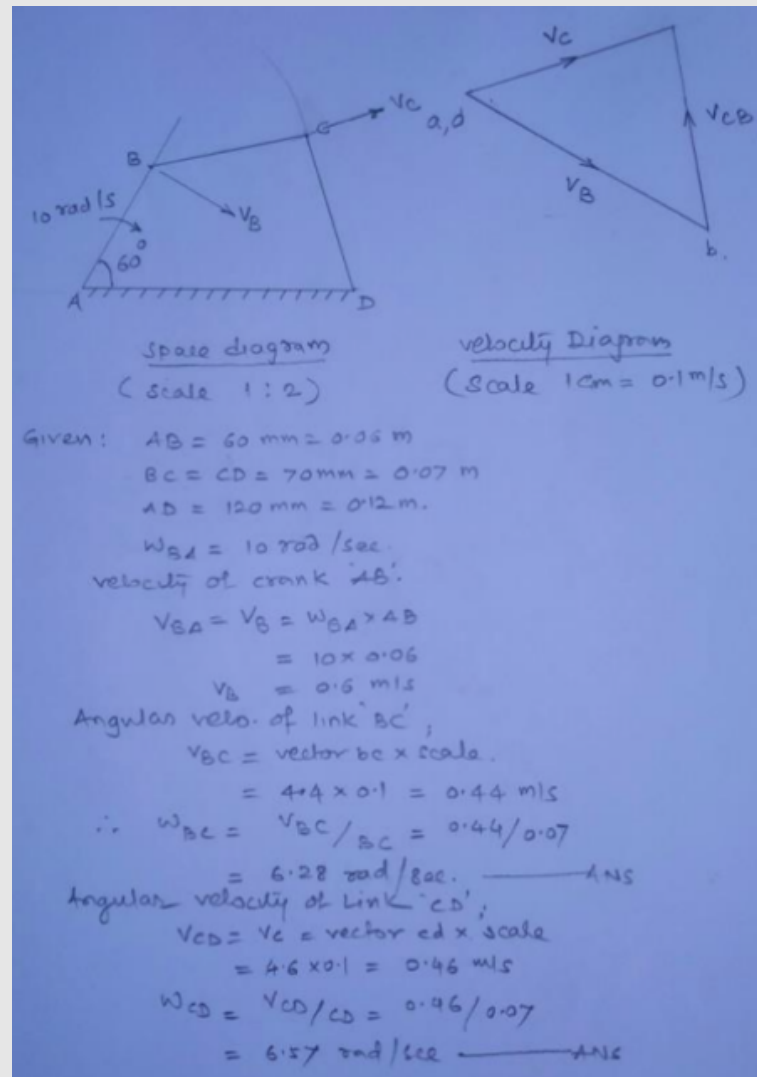 Vc
Vc
a,d
VCB
B
C
10 rad/s
VB
VB
60°
b.
A
D
space diagram
velocity Diagram
(scale 1:2)
(scale 1cm = 0.1m/s)
Given: AB = 60 mm = 0.06 m
BC = CD = 70mm = 0.07 m
AD = 120 mm = 0.12 m.
WBA = 10 rad/sec.
velocity of crank 'AB'.
VBA = VB = WBA × AB
= 10 × 0.06
VB = 0.6 m/s
Angular velo. of link 'BC',
VBC = vector bc × scale.
= 4.4 × 0.1 = 0.44 m/s
∴ WBC = VBC/BC = 0.44/0.07
= 6.28 rad/sec. ANS
Angular velocity of Link 'CD';
VCD = Vc = vector cd × scale
= 4.6 × 0.1 = 0.46 m/s
WCD = VCD/CD = 0.46/0.07
= 6.57 rad/sec ANS